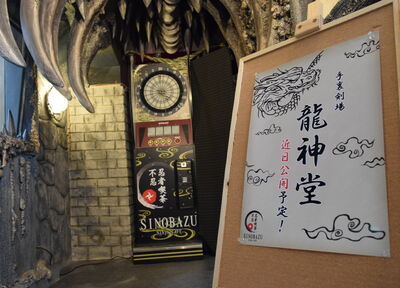 忍者喫茶
不忍
SINOBAZU
手裏剣場
龍神堂
近日公開予定!
SINOBAZU